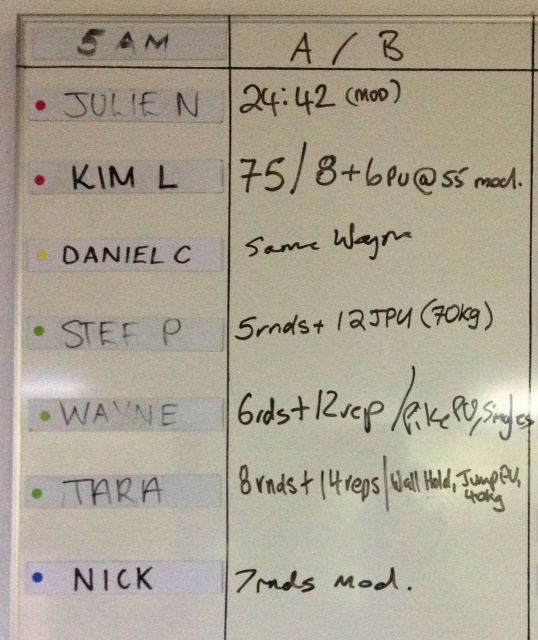 5 AM A / B
JULIE N 24:42 (MOD)
KIM L 75/8+6PU@55 mod.
DANIEL C Same Wayne
STEF P 5rnds+ 12JPU (70kg)
WAYNE 6rds+12rep /Pike PU, Singles
TARA 8rnds+14reps/Wall Hold, Jump PU,
40kg
NICK 7rnds mod.